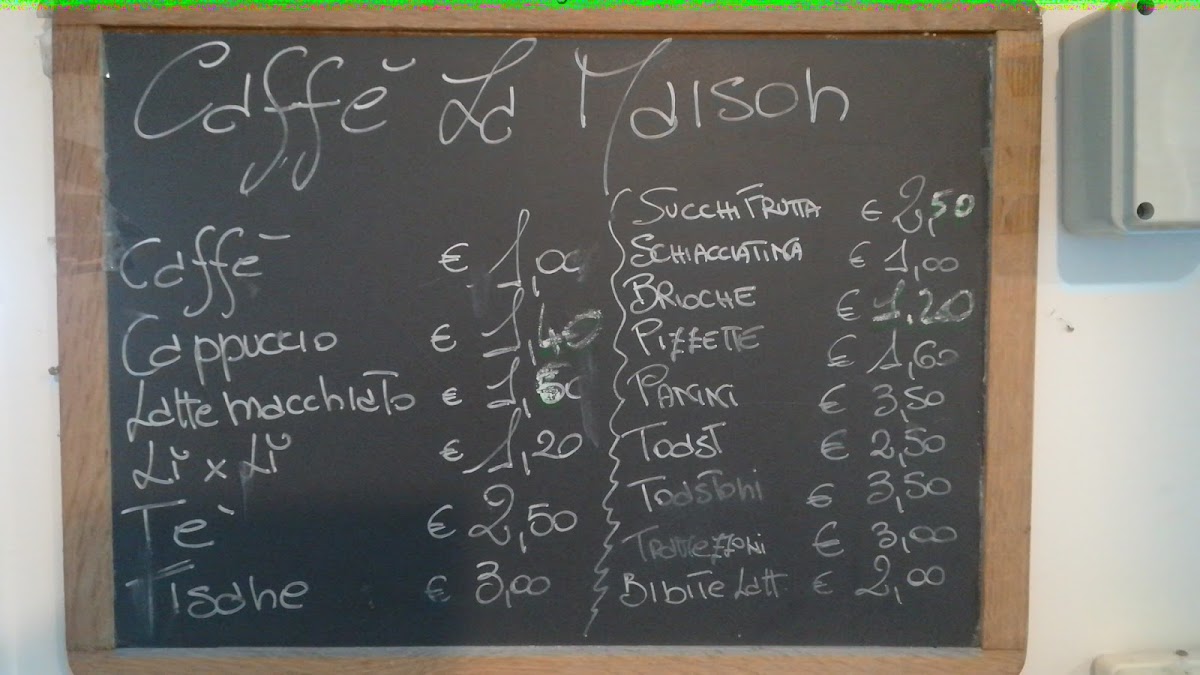 Caffè La Maison
Caffè € 1,00
Cappuccio € 1,40
Latte macchiato € 1,50
Lì x Lì € 1,20
Tè € 2,50
Tisane € 3,00
SUCCHI FRUTTA € 2,50
SCHIACCIATINA € 1,00
BRIOCHE € 1,20
PIZZETTE € 1,60
PANINI € 3,50
Toast € 2,50
Toastoni € 3,50
€ 3,00
BIBITE Latt € 2,00